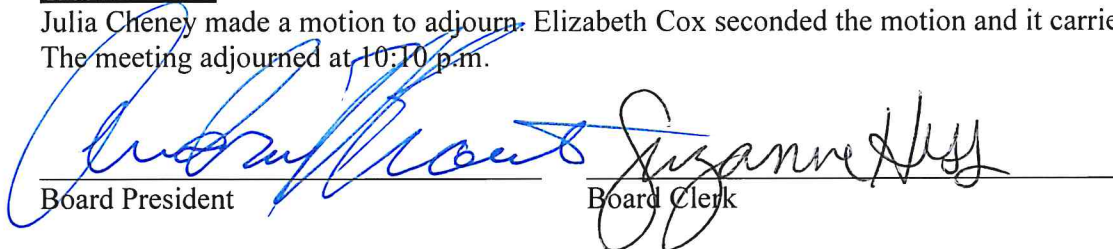 Julia Cheney made a motion to adjourn. Elizabeth Cox seconded the motion and it carrie
The meeting adjourned at 10:10 p.m.
Suzanne Hess
Board President
Board Clerk